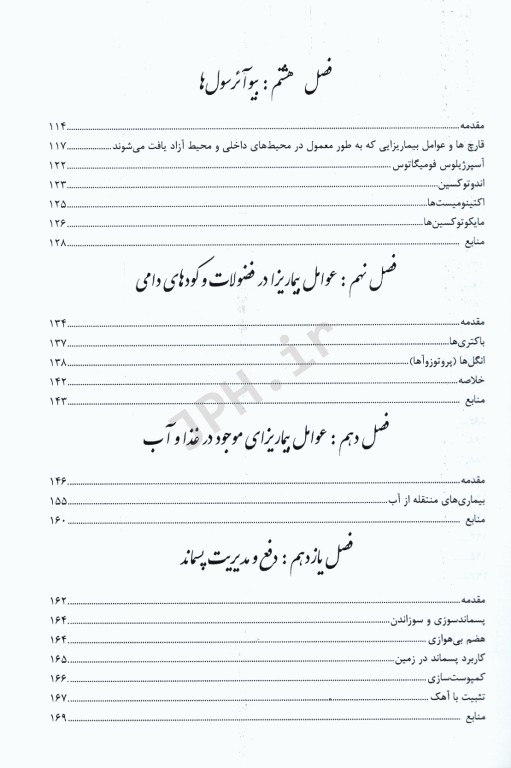 فصل هشتم : بیوآئرسول‌ها
مقدمه ۱۱۴
قارچ ها و عوامل بیماریزایی که به طور معمول در محیط‌های داخلی و محیط آزاد یافت می‌شوند ۱۱۷
آسپرژیلوس فومیگاتوس ۱۲۲
اندوتوکسین ۱۲۳
اکتینومیست‌ها ۱۲۵
مایکوتوکسین‌ها ۱۲۶
منابع ۱۲۸
فصل نهم : عوامل بیماریزا در فضولات و کودهای دامی
مقدمه ۱۳۴
باکتری‌ها ۱۳۷
انگل‌ها (پروتوزوآها) ۱۳۸
خلاصه ۱۴۲
منابع ۱۴۳
JPH.ir
فصل دهم : عوامل بیماریزای موجود در غذا و آب
مقدمه ۱۴۶
بیماری‌های منتقله از آب ۱۵۵
منابع ۱۶۰
فصل یازدهم : دفع و مدیریت پسماند
مقدمه ۱۶۲
پسماندسوزی و سوزاندن ۱۶۴
هضم بی‌هوازی ۱۶۴
کاربرد پسماند در زمین ۱۶۵
کمپوست‌سازی ۱۶۶
تثبیت با آهک ۱۶۷
منابع ۱۶۹